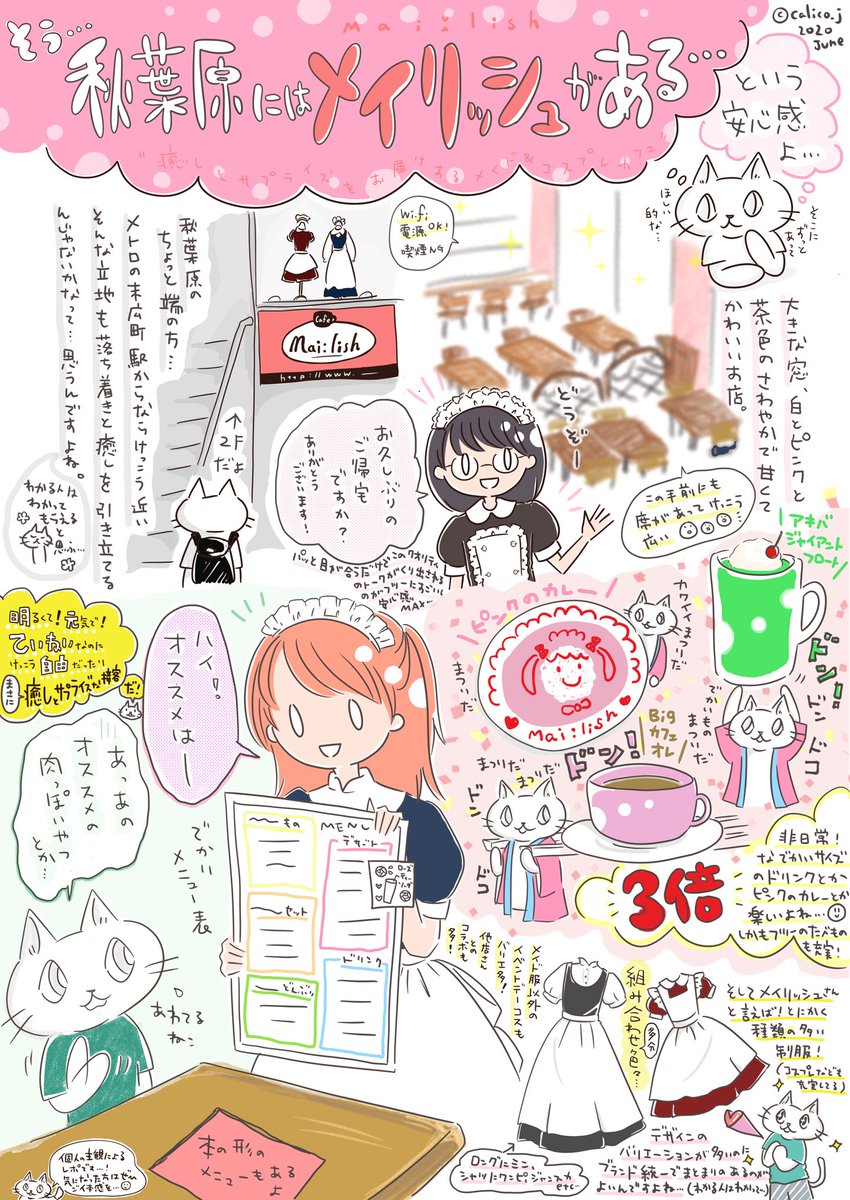 mai:lish
©calico.j
2020
June
そう…
秋葉原にはメイリッシュがある…
"癒しとサプライズをお届けするメイド&コスプレカフェ"
という
安心感
よ…
そこに
ずっと
あって
ほしい
的な…
Wifi
電源OK!
喫煙NG
秋葉原の
ちょっと端の方…
メトロの末広町駅からならけっこう近い
そんな立地も落ち着きと癒しを引き立てる
んじゃないかなって…思うんですよね。
わかる人は
わかって
もらえる
と
思ふ…
Cafe
Mai:lish
http://www.
↑
2F
だよ
大きな窓、白とピンクと
茶色のさわやかで甘くて
かわいいお店。
どうぞー
お久しぶりの
ご帰宅
ですか?
ありがとう
ございます!
パッと目が合うだけでこのクオリティ
のトークがくり出される
のがフツーにすごい
安心感
MAX…
この手前にも
席があってけっこう
広い
アキバ
ジャイアント
フロート!
ドン!
ピンクのカレー
カワイイまつりだ
まつりだ
Mai:lish
でかいもの
まつりだ
ドン
ドコ
Big
カフェ
オレ
ドーン!
まつりだ
まつりだ
ドン
ドコ
3倍
非日常!
なでかいサイズ
のドリンクとか
ピンクのカレーとか
楽しいよね…
しかもフツーのたべもの
も充実!
明るくて!元気で!
ていねいなのに
けっこう自由だったり
まさに癒しとサプライズな接客だ!
ハイ!
オススメはー
あっあの
オススメの
肉っぽいやつ
とか…
でかい
メニュー表
あわてる
ねこ
MENU
〜もの
デザート
〜セット
〜どんぶり
ドリンク
ローズ
ティー
ソーダ
本の形の
メニューもある
よ
個人の主観による
レポです…!
気になった方はぜひ
ご了承を…
メイド服以外の
イベントデーコスも
バリエ多!
他店さん
との
コラボも
多!
組み合わせ色々…
多分
そしてメイリッシュさん
と言えば!とにかく
種類の多い
制服!
(コスプレなども
充実してる)
ロングにミニ、
シャツにワンピジャンスカ
etc…
デザインの
バリエーションが多いのに
ブランド統一でまとまりのあるのが
よいんですよね…(わかる人にわかって〜)